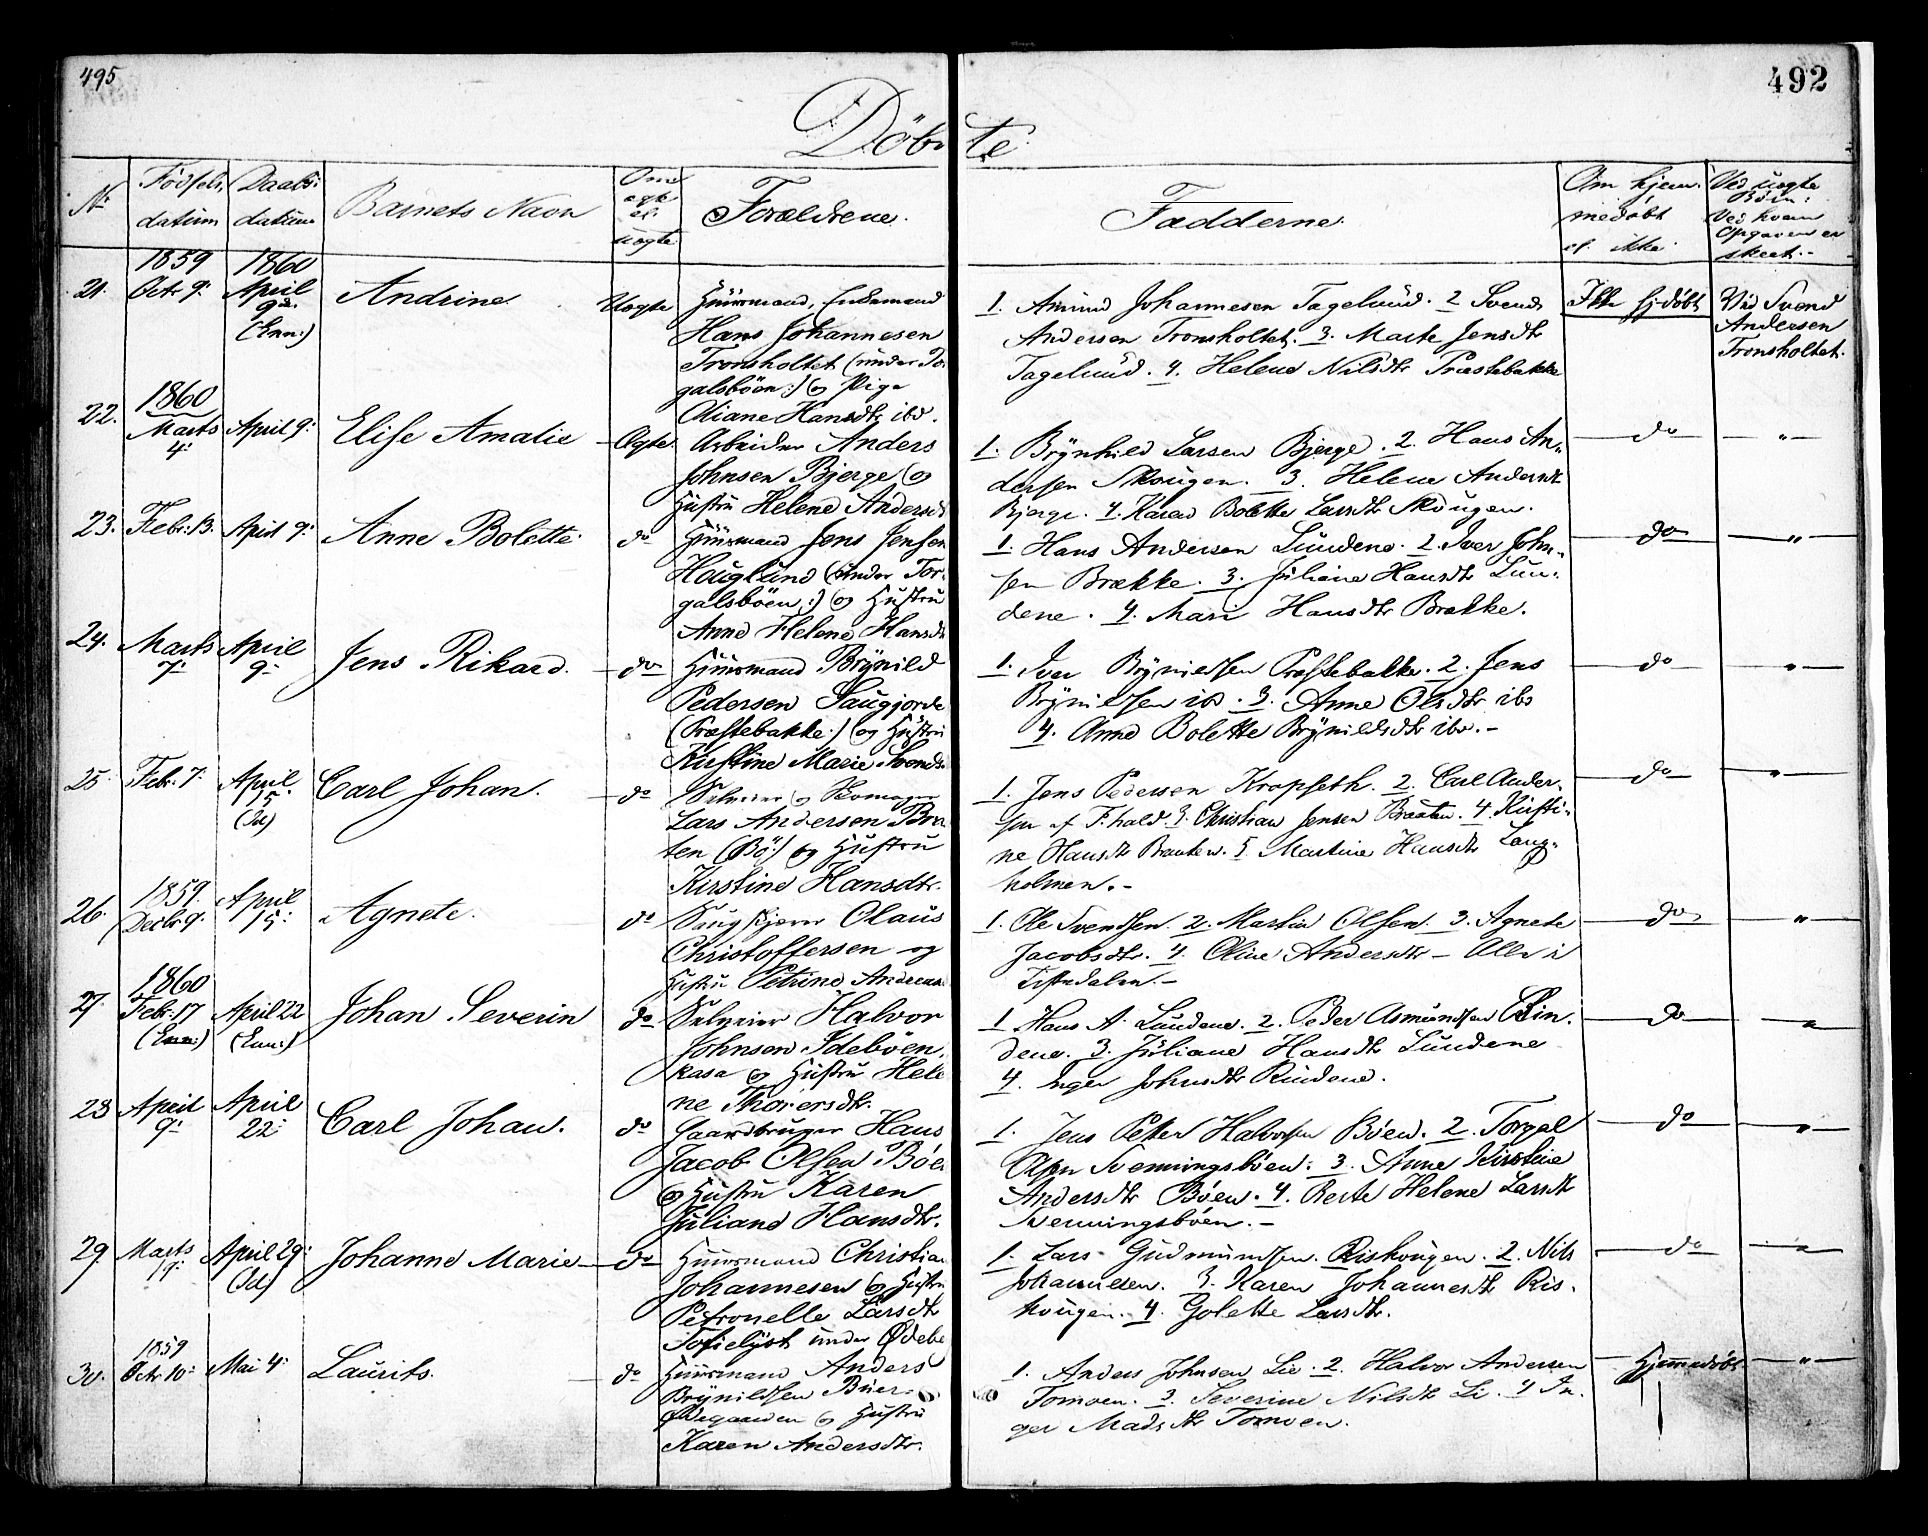 495
492
Døbte
No
Fødsels datum
Daabs datum
Barnets Navn
Om ægte el. uægte
Forældrene.
Fadderne.
Om hjemmedøbt el. ikke
Ved uægte Børn: Ved hvem Opgaven er skeet.-
21.
1859 Octr 9:
1860 April 9de (Enn:)
Andrine.
Uægte
Huusmand, Enkemand
Hans Johannesen
Tronsholtet (under Tor
galsbøen:) og Pige
Oliane Hansdtr ibd.
1. Amund Johannesen Tagelund. 2 Svend
Andersen Tronsholtet. 3. Marte Jensdtr
Tagelund. 4. Helene Nilsdtr Præstebakke
Ikke hjdøbt
Ved Svend
Andersen
Tronsholtet.
22.
1860 Marts 4:
April 9:
Elise Amalie
Ægte.
Arbeider Anders
Johnsen Bjerge, og
Hustru Helene Andersd
1. Brÿnhild Larsen Bjerge. 2. Hans An-
dersen Skougen. 3. Helene Andersdtr
Bjerge. 4. Karen Bolette Larsdtr Skougen.
do
"
23.
Febr: 13.
April 9:
Anne Bolette.
do
Huusmand Jens Jensen
Houglund (under Tor-
galsbøen:) og Hustru
Anne Helene Hansdtr
1. Hans Andersen Lundene. 2. Iver John-
sen Brække. 3. Juliane Hansdtr Lun-
dene. 4. Mari Hansdtr Brække.
do
"
24.
Marts 7:
April 9:
Jens Rikard.
do
Huusmand Brÿnild
Pedersen Saugjorde
(Præstebakke:) og Hustru
Kirstine Marie Svendsdtr
1. Iver Brÿnildsen Præstebakke. 2. Jens
Brÿnildsen ibd. 3. Anne Olsdtr ibd
4. Anne Bolette Brÿnildsdtr ibd.-
do
"
25.
Febr. 7:
April 15. (Id)
Carl Johan.
do
Selveier og Skomager
Lars Andersen Braa
ten (Bø:) og Hustru
Kirstine Hansdtr.
1. Jens Pedersen Kropseth. 2. Carl Ander-
sen af F.hald. 3. Christian Jensen Braaten. 4. Kirsti-
ne Hansdtr Braaten. 5. Martine Hansdtr Lang-
holmen.-
do
"
26.
1859. Decbr 9.
April 15:
Agnete.
do
Saugskjerer Olaus
Christoffersen og
Hustru Petrine Andreas
1. Ole Svendsen. 2. Martin Olsen. 3. Agnete
Jacobsdtr. 4. Oline Andersdtr - Alle i
Tistedalen.-
do
"
27.
1860 Febr: 17 (Enn:)
April 22 (Enn:)
Johan Severin
do
Selveier Halvor
Johnsen Idebøen,
kasa og Hustru Hele
ne Thorersdtr.
1 Hans A. Lundene. 2. Peder Asmundsen
dene. 3. Juliane Hansdtr Lundene
4. Inger Johnsdtr Rindene.
do
"
28
April 9:
April 22:
Carl Johan.
do
Gaardbruger Hans
Jacob Olsen Bøen
og Hustru Karen
Juliane Hansdtr.
1. Jens Petter Halvorsen Bøen. 2. Torgal
Svenningsbøen. 3. Anne Kirstine
Andersdtr Bøen. 4. Berte Helene Larsdtr
Svenningsbøen.-
do
"
29.
Marts 19:
April 29: (Id)
Johanne Marie
do
Huusmand Christian
Johannesen og Hustru
Petronelle Larsdtr
Tofielÿst under Ødebe
1. Lars Gudmundsen Riskougen. 2. Nils
Johannesen. 3. Karen Johannesdtr Ris-
kougen. 4. Golette Larsdtr.
do
"
30.
1859 Octr 10:
Mai 4:
Laurits.
do
Huusmand Anders
Brÿnildsen Buer-
Ødegaarden og Hustru
Karen Andersdtr.
1. Anders Johnsen Lie. 2. Halvor Andersen
Tomoen. 3. Severine Nilsdtr Li. 4 In-
ger Madsdtr Tomoen.
Hjemmedøbt
"